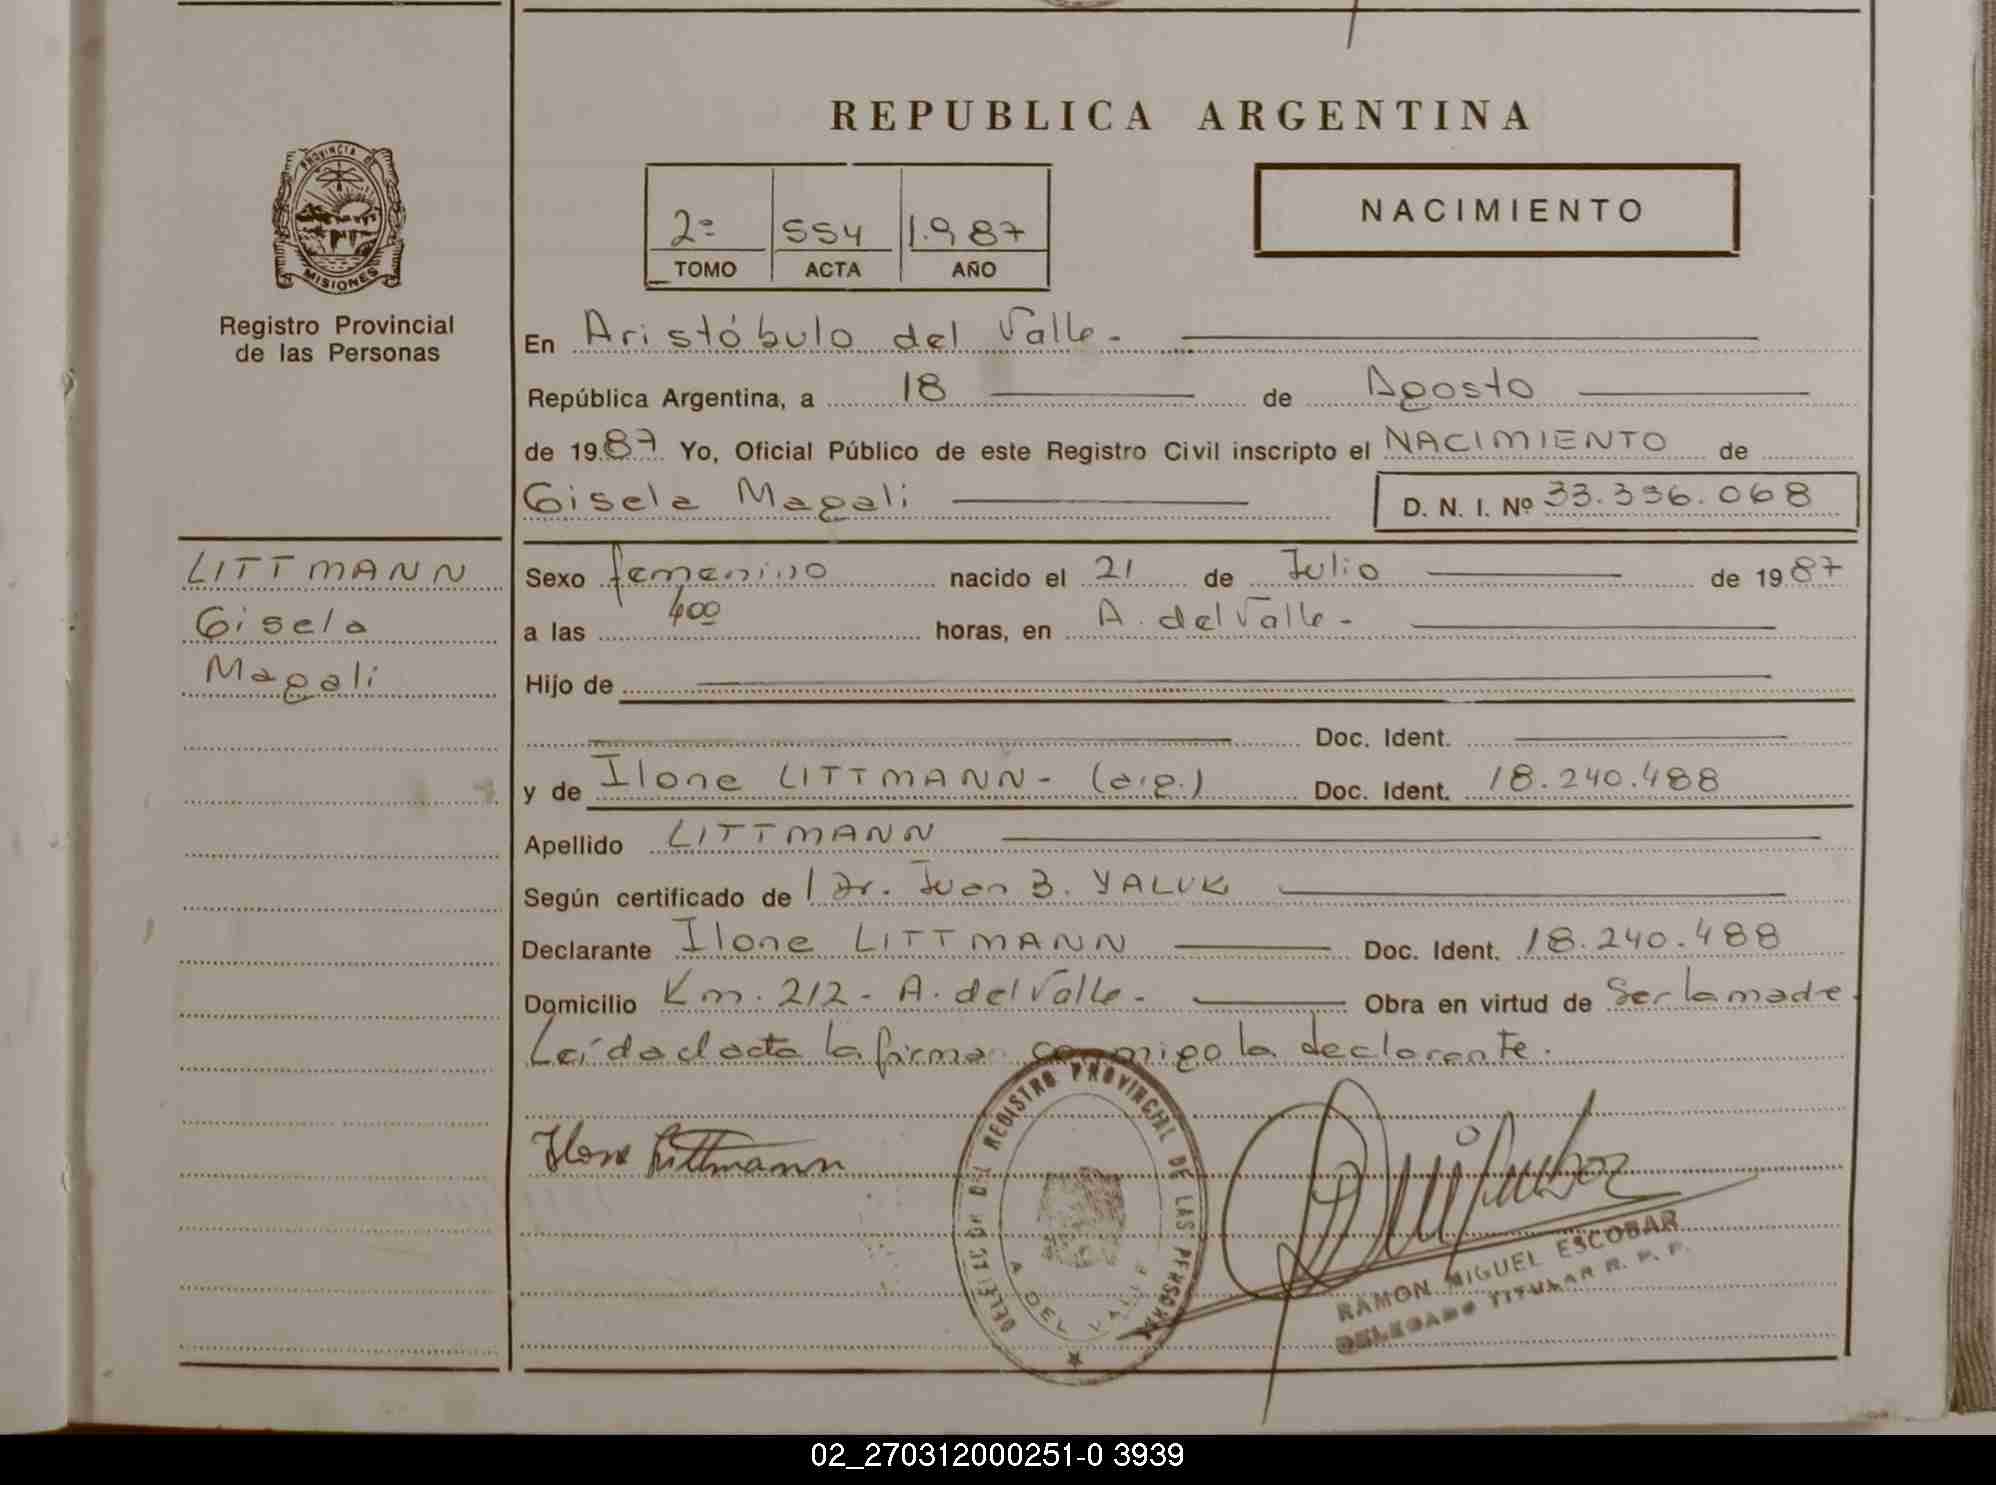 REPUBLICA ARGENTINA
PROVINCIA DE
MISIONES
Registro Provincial
de las Personas
2º 554 1.987
TOMO ACTA AÑO
NACIMIENTO
En Aristóbulo del Valle.-
República Argentina, a 18 de Agosto
de 1987 Yo, Oficial Público de este Registro Civil inscripto el NACIMIENTO de
Gisela Magali D. N. I. Nº 33.336.068
LITTMANN
Gisela
Magali
Sexo femenino nacido el 21 de Julio de 1987
a las 4ºº horas, en A. del Valle.-
Hijo de
Doc. Ident.
y de Ilone LITTMANN- (arg.) Doc. Ident. 18.240.488
Apellido LITTMANN
Según certificado de Dr. Juan B. YALUK
Declarante Ilone LITTMANN Doc. Ident. 18.240.488
Domicilio Km. 212- A. del Valle.- Obra en virtud de Ser la madre.
Leída el acta la firma conmigo la declarante.
Ilone Littmann
DEL REGISTRO PROVINCIAL DE LAS PERSONAS
A DEL VALLE
RAMON MIGUEL ESCOBAR
DELEGADO TITULAR R. P. P.
02_270312000251-0 3939